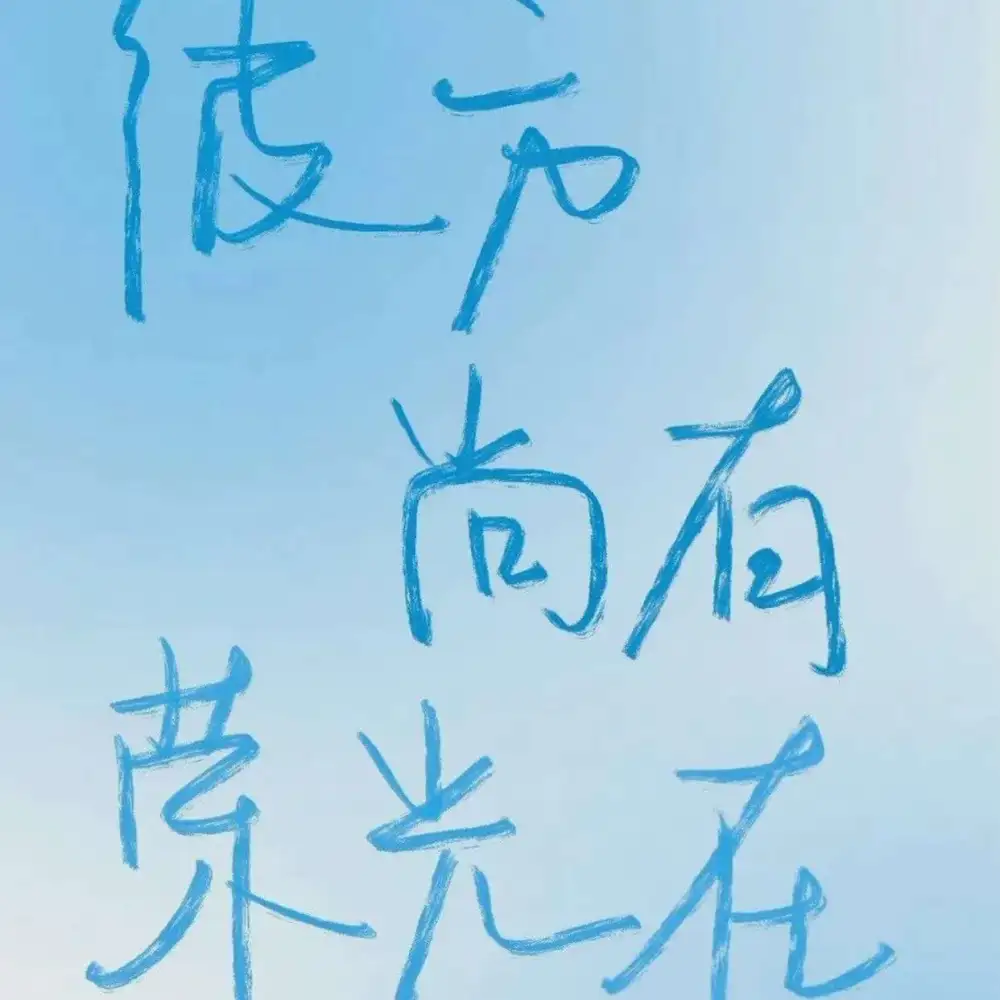 彼方
尚有
荣光在